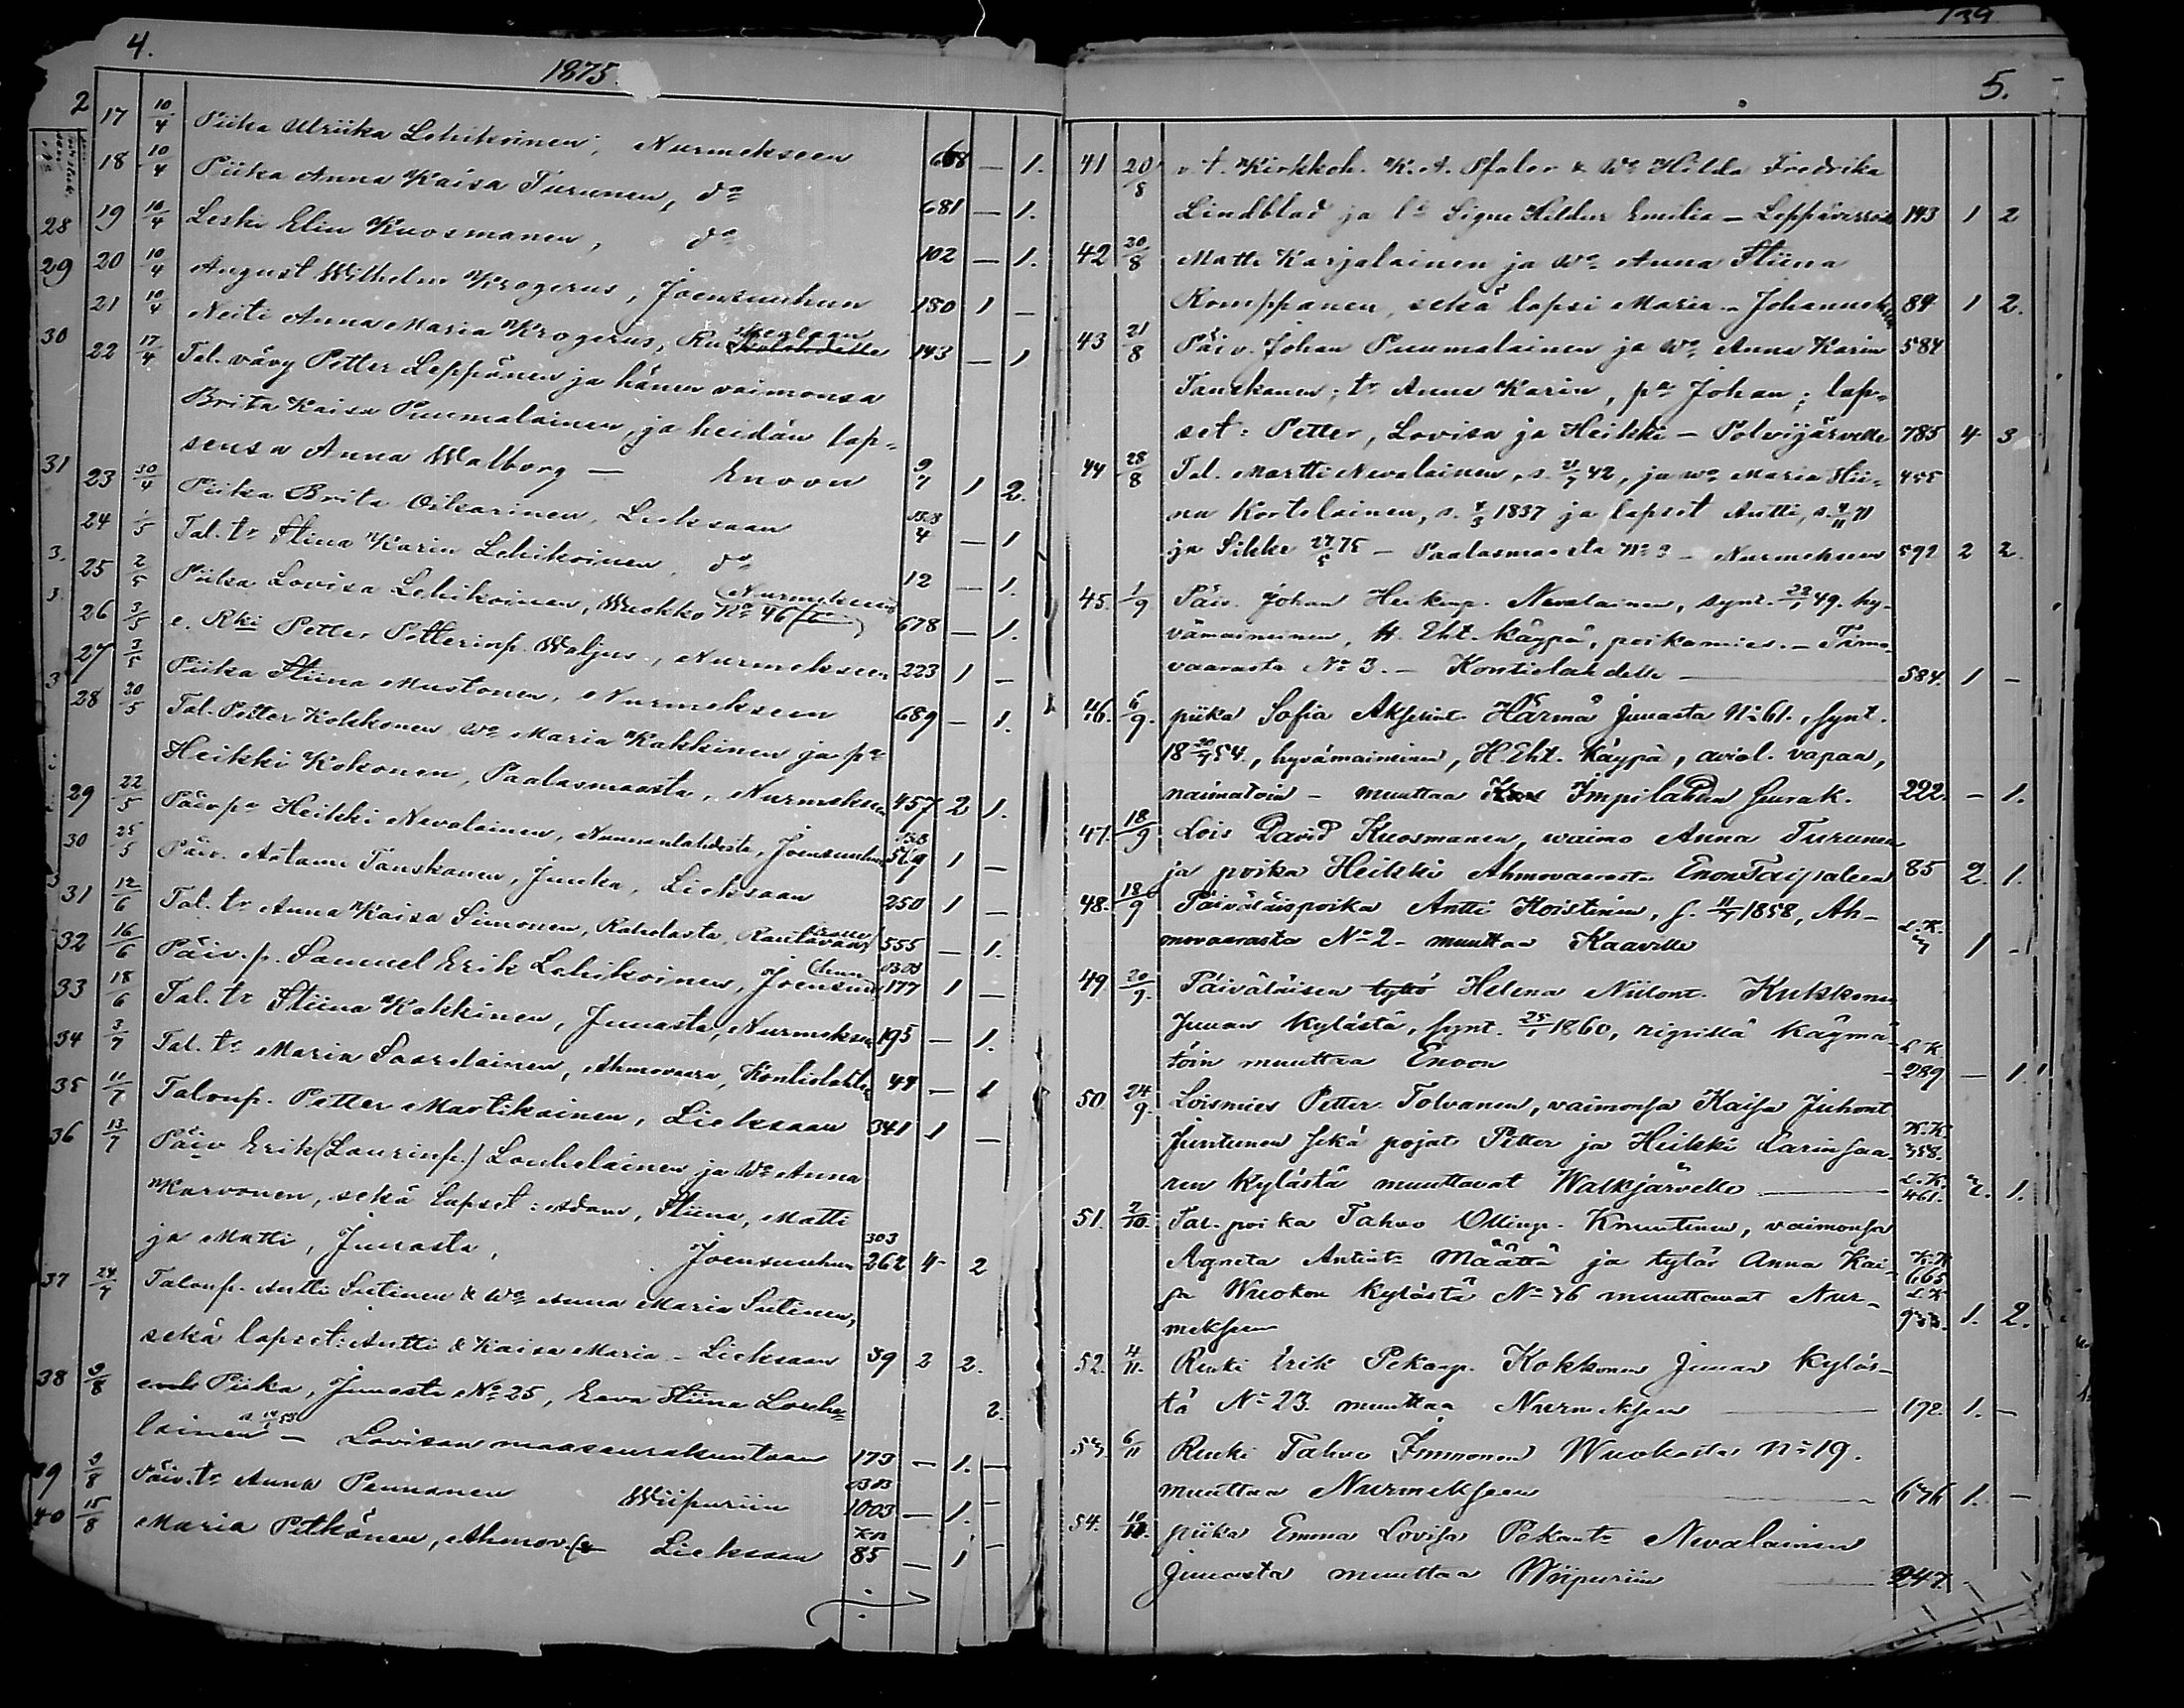 4.
1875.
17 10/4 Piika Ulriika Lehikoinen, Nurmekseen 668 — 1.
18 10/4 Piika Anna Kaisa Turunen, do 681 — 1.
19 10/4 Leski Elin Kuosmanen, do 102 — 1.
20 10/4 August Wilhelm Krogerus, Joensuuhun 180 1 —
21 10/4 Neiti Anna Maria Krogerus, 143 — 1
22 17/4 Tal. vävy Petter Leppänen ja hänen vaimonsa
Brita Kaisa Puumalainen, ja heidän lap-
sensa Anna Walborg — Enoon 9/7 1 2.
23 30/4 Piika Brita Oikarinen, Lieksaan 4 — 1
24 1/5 Tal. tr Stina Karin Lehikoinen, do 12 — 1.
25 2/5 Piika Lovisa Lehikoinen, Wuokko No 46 Nurmekseen 678 — 1.
26 3/5 e. Rki Petter Petterinp. Waljus, Nurmekseen 223 1 —
27 3/5 Piika Stiina Mustonen, Nurmekseen 689 — 1.
28 20/5 Tal. Petter Kokkonen Wo Maria Kakkinen ja pa
Heikki Kokonen, Paalasmaasta, Nurmekseen 457 2 1.
29 22/5 Päivpa Heikki Nevalainen, Nunnanlahdesta, Joensuuhun 569 1 —
30 25/5 Päiv. Aatami Tanskanen, Juuka, Lieksaan 250 1 —
31 12/6 Tal. tr Anna Kaisa Simonen, Raholasta, Rautavaaralle 555 — 1.
32 16/6 Päiv. p. Samuel Erik Lehikoinen, Joensuuhun 177 1 —
33 18/6 Tal. tr Stiina Kakkinen, Juuasta, Nurmekseen 195 — 1.
34 3/7 Tal. tr Maria Saarelainen, Ahmovaara, Kontiolahdelle 44 — 1
35 11/7 Talonp. Petter Martikainen, Lieksaan 341 1 —
36 13/7 Päiv Erik (Laurinp.) Louhelainen ja Wo Anna
Karvonen, sekä lapset: Adam, Stiina, Matti
303
ja Matti, Juuasta, Joensuuhun 262 4 2
37 24/7 Talonp. Antti Sutinen & Wo Anna Maria Sutinen,
sekä lapset: Antti & Kaisa Maria — Lieksaan 39 2 2.
38 9/8 Piika, Juuasta No 25, Eeva Stiina Louhe-
lainen — Lovisan maaseurakuntaan 173 — 1. —
39 9/8 Päiv. tr Anna Pennanen Wiipuriin 1003 — 1. —
40 15/8 Maria Pitkänen, Ahmov. Lieksaan 85 — 1 —
5.
41 20/8 v.t. Kirkkoh. K. A. Pfaler & Wo Hilda Fredrika
Lindblad ja ls Signe Hildur Emilia — Leppävirroille 143 1 2
42 20/8 Matti Karjalainen ja Wo Anna Stiina
Romppanen, sekä lapsi Maria — Johannekselle 84 1 2.
43 21/8 Päiv. Johan Puumalainen ja Wo Anna Karin 584
Tanskanen; tr Anna Karin, pa Johan; lap-
set: Petter, Lovisa ja Heikki — Polvijärvelle 785 4 3
44 28/8 Tal. Martti Nevalainen, s. 21/7 42, ja wo Maria Stii- 455
na Kortelainen, s. 4/3 1837 ja lapset Antti, s. 4/11 71
ja Sikke 27/5 75 — Paalasmaasta No 3 — Nurmekseen 592 2 2.
45. 1/9 Päiv. Johan Heikinp. Nevalainen, synt. 23/1 49. hy-
vämaineinen, H. Eht. käypä, poikamies. — Timo-
vaarasta No 3. — Kontiolahdelle 584. 1 —
46. 6/9. piika Sofia Akselint. Härmä Juuasta No 61., synt.
18 20/7 54., hyvämaineinen, H. Eht. käypä, aviol. vapaa,
naimatoin — muuttaa Impilahden seurak. 292. — 1.
47. 18/9 Lois David Kuosmanen, waimo Anna Turunen
ja poika Heikki Ahmovaarasta Enon Taipaleen 85 2. 1.
48. 18/9 Päiväläispoika Antti Koistinen, s. 11/7 1858, Ah-
movaarasta No 2 — muuttaa Kaaville L.K. 1 —
49 20/9. Päiväläisen tyttö Helena Niilont. Kukkonen
Juuan kylästä, synt. 25/1 1860, ripillä käymä-
töin muuttaa Enoon L.K. 289 — 1.
50. 24/9. Loismies Petter Tolvanen, vaimonsa Kaisa Juhont.
Juntunen sekä pojat Petter ja Heikki Larinsaa- K.K. 358.
ren kylästä muuttavat Walkjärvelle L.K. 461. 2. 1.
51. 2/10. Tal. poika Tahvo Ollinp. Knuutinen, vaimonsa
Agneta Antint. Määttä ja tytär Anna Kai- K.K. 665
sa Wuokon kylästä No 46 muuttavat Nur- L.K.
mekseen 933. 1. 2.
52. 4/11. Renki Erik Pekanp. Kokkonen Juuan kyläs-
tä No 23. muuttaa Nurmekseen 172. 1. —
53. 6/11 Renki Tahvo Immonen Wuokosta No 19.
muuttaa Nurmekseen 676 1. —
54. piika Emma Lovisa Pekant. Nevalainen
Juuasta muuttaa Wiipuriin 247.